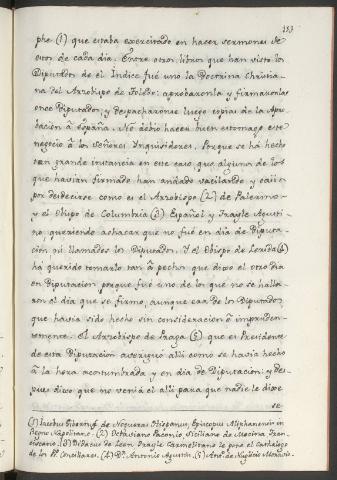 phe (1) que estaba exercitado en hacer sermones de
estos de cada dia. Entre otros libros que han visto los
Diputados de el Indice fué uno la Doctrina Christia-
na del Arzobispo de Toledo: aprobaronla y firmaronlas
once Diputados, y despacharonse luego copias de la Apro-
bacion á España. No debió hacer buen estomago este
negocio á los Señores Inquisidores. Porque se há hecho
tan grande instancia en este caso que algunos de los
que havian firmado han andado vacilando y casi
por desdecirse como es el Arzobispo (2) de Palermo
y el Obispo de Columbria (3) Español y Frayle Agusti-
no, queriendo achacar que no fué en dia de Diputa-
cion ni llamados los Diputados. Y el Obispo de Lerida (4)
há querido tomarlo tan á pechos que dixo el otro dia
en Diputacion porque fué uno de los que no se halla-
ron el dia que se firmo, aunque era de los Diputados
que havia sido hecho sin consideracion é impruden-
temente. El Arzobispo de Praga (5) que es Presidente
de esta Diputacion averiguó alli como se havia hecho
á la hora acostumbrada y en dia de Diputacion: y des-
pues dixo que no venia el alli para que nadie le dixe
se
(1) Jacobus Gibertus de Nogueras Hispanus, Episcopus Aliphanensis in
Regno Napolitano. (2) Octaviano Paconio, Siciliano de Mecina Fran-
ciscano. (3) Didacus de Leon Frayle Carmelitano le pone el Cathalogo
de los PP. Conciliares. (4) Dn. Antonio Agustin. (5) Ant. de Muglicio Moravo.